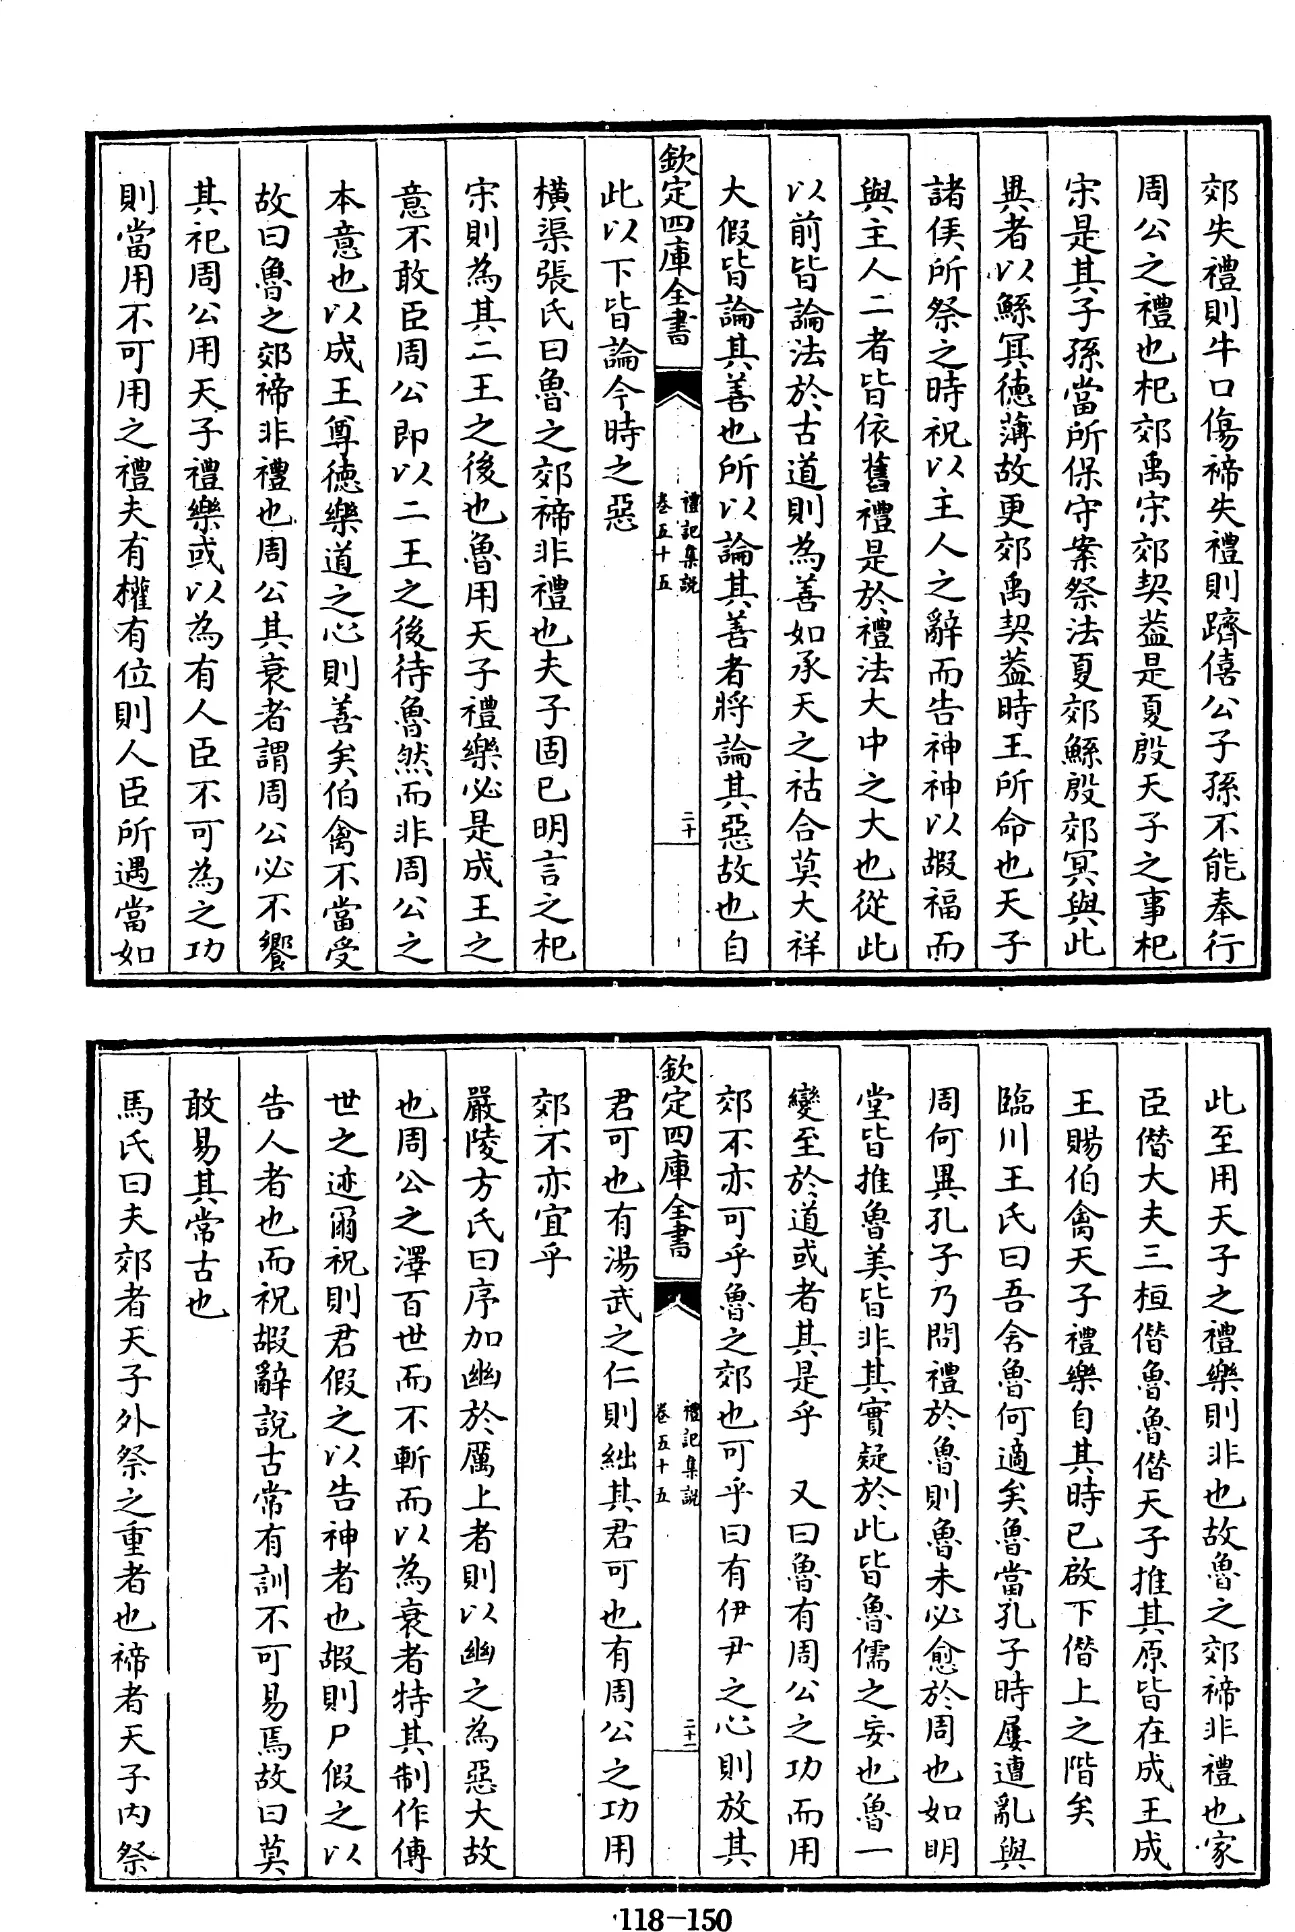 郊失禮則牛口傷禘失禮則躋僖公子孫不能奉行
周公之禮也杞郊禹宋郊契葢是夏殷天子之事杞
宋是其子孫當所保守案祭法夏郊鯀殷郊冥與此
異者以鯀冥徳薄故更郊禹契葢時王所命也天子
諸侯所祭之時祝以主人之辭而告神神以嘏福而
與主人二者皆依舊禮是於禮法大中之大也從此
以前皆論法於古道則為善如承天之祜合莫大祥
大假皆論其善也所以論其善者將論其惡故也自
欽定四庫全書
禮記集説
卷五十五
二十
此以下皆論今時之惡
橫渠張氏曰魯之郊禘非禮也夫子固已明言之杞
宋則為其二王之後也魯用天子禮樂必是成王之
意不敢臣周公即以二王之後待魯然而非周公之
本意也以成王尊徳樂道之心則善矣伯禽不當受
故曰魯之郊禘非禮也周公其衰者謂周公必不饗
其祀周公用天子禮樂或以為有人臣不可為之功
則當用不可用之禮夫有權有位則人臣所遇當如
此至用天子之禮樂則非也故魯之郊禘非禮也家
臣僭大夫三桓僭魯魯僭天子推其原皆在成王成
王賜伯禽天子禮樂自其時已啟下僭上之階矣
臨川王氏曰吾舍魯何適矣魯當孔子時屢遭亂與
周何異孔子乃問禮於魯則魯未必愈於周也如明
堂皆推魯美皆非其實疑於此皆魯儒之妄也魯一
變至於道或者其是乎　又曰魯有周公之功而用
郊不亦可乎魯之郊也可乎曰有伊尹之心則放其
欽定四庫全書
禮記集説
卷五十五
二十一
君可也有湯武之仁則絀其君可也有周公之功用
郊不亦宜乎
嚴陵方氏曰序加幽於厲上者則以幽之為惡大故
也周公之澤百世而不斬而以為衰者特其制作傳
世之迹爾祝則君假之以告神者也嘏則尸假之以
告人者也而祝嘏辭說古常有訓不可易焉故曰莫
敢易其常古也
馬氏曰夫郊者天子外祭之重者也禘者天子内祭
118-150